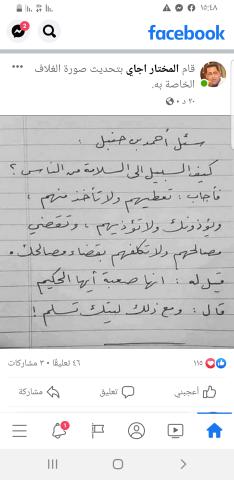 ١٥:٤٨
facebook
2
قام المختار اجاي بتحديث صورة الغلاف
الخاصة به.
٢٠ د
سئل أحمد بن حنبل :
كيف السبيل إلى السلامة من الناس ؟
فأجاب : تعطيهم ولا تأخذ منهم ،
ويؤذونك ولا تؤذيهم ، وتقضي
مصالحهم ولا تكلفهم بقضاء مصالحك .
قيل له : انها صعبة أيها الحكيم
قال : ومع ذلك ليتك تسلم !
١١٦
٤٦ تعليقًا • ٣ مشاركات
أعجبني
تعليق
مشاركة
1